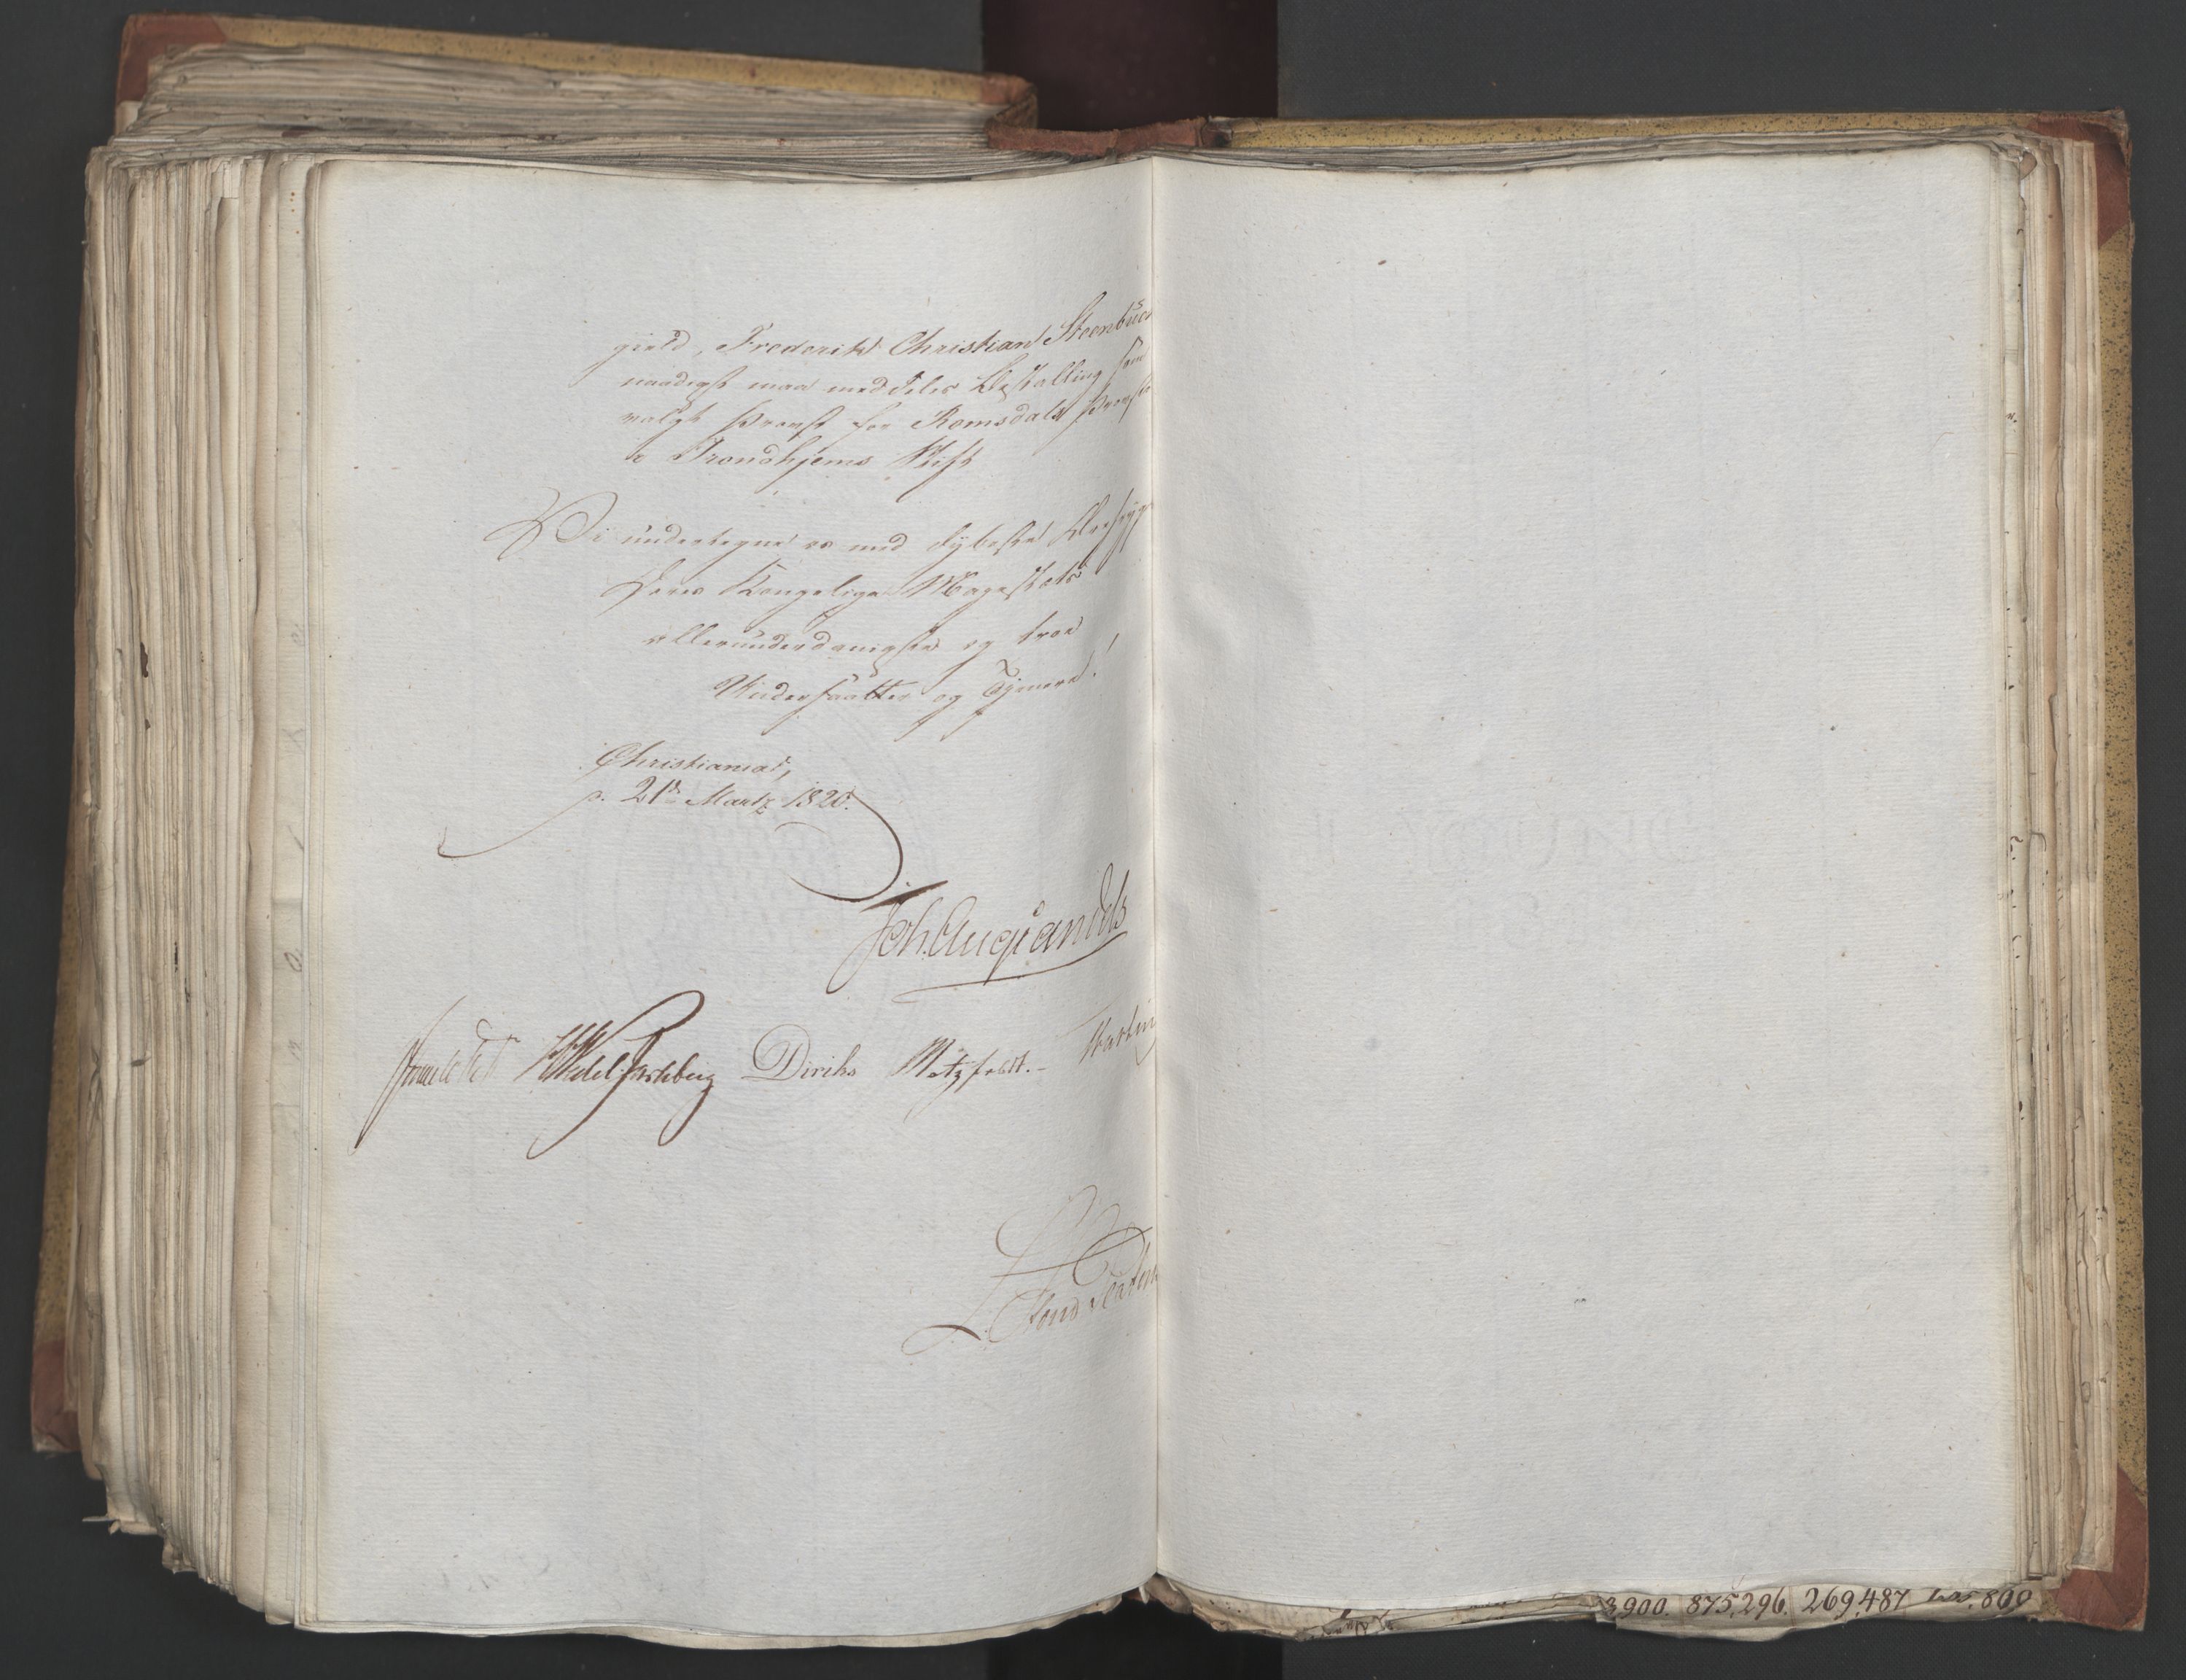 gield, Frederik Christian Steenbuc
naadigst maa meddeles Bestalling som
valgt Provst for Romsdals Provstie
i Trondhjems Stift
Vi undertegne os med dybeste Ærefrygt
Deres Kongelige Majestæts
allerunderdanigste og troe
Undersaatter og Tjenere!
Christiania,
d. 21de Martz 1820.
Joh. Aug: Sandels
HWedel Jarlsberg Diriks Motzfeldt.
3900. 875,296. 269,487 800